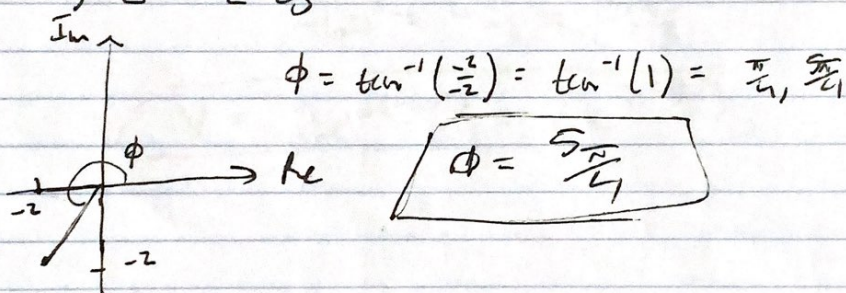 Im
φ = tan⁻¹(-2/-2) = tan⁻¹(1) = π/4, 5π/4
φ
Re
φ = 5π/4
-2
-2